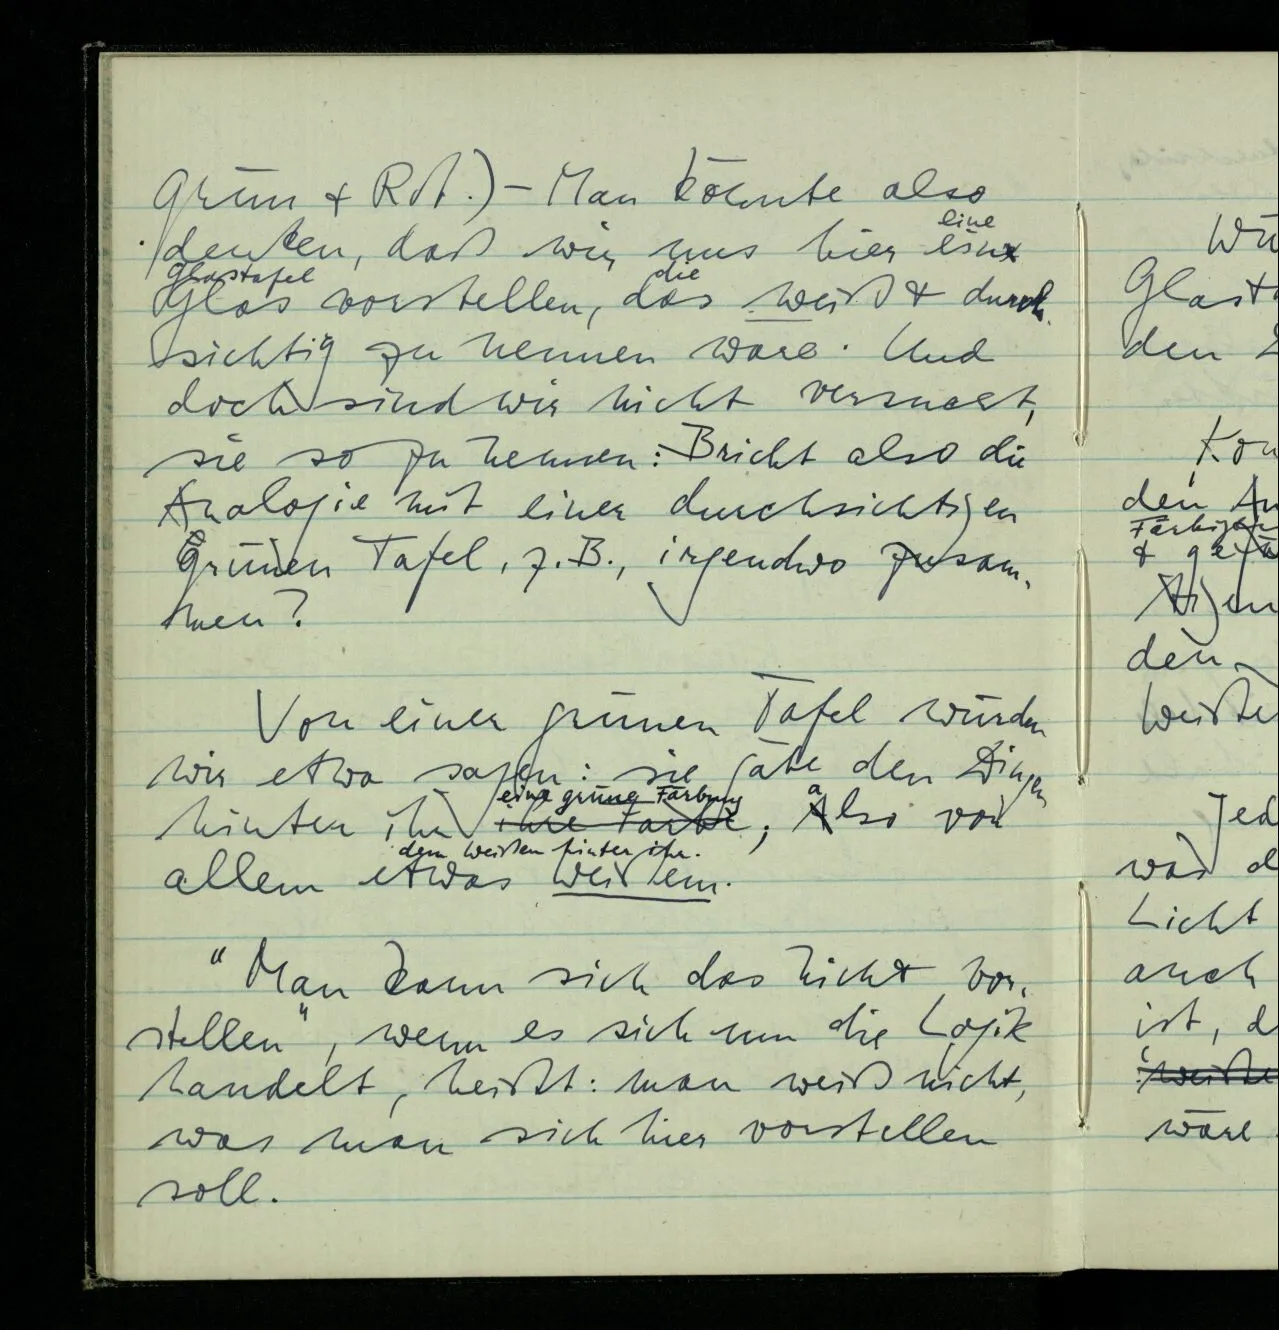 Grün & Rot.) – Man könnte also
eine
denken, daß wir uns hier ein
Glastafel die
Glas vorstellen, das weiß & durch-
sichtig zu nennen wäre. Und
doch sind wir nicht versucht,
sie so zu nennen: Bricht also die
Analogie mit einer durchsichtigen
Grünen Tafel, z.B., irgendwo zusam-
men?
Von einer grünen Tafel würden
wir etwa sagen: sie gäbe den Dingen
eine grüne Färbung
hinter ihr ihre Farbe; Also vor
dem Weißen hinter ihr.
allem etwas weißem.
"Man kann sich das nicht vor-
stellen", wenn es sich um die Logik
handelt, heißt: man weiß nicht,
was man sich hier vorstellen
soll.
Glast
den
den
Färbi
&
den
Jed
was d
Licht
auch
ist, d
weiße
wäre